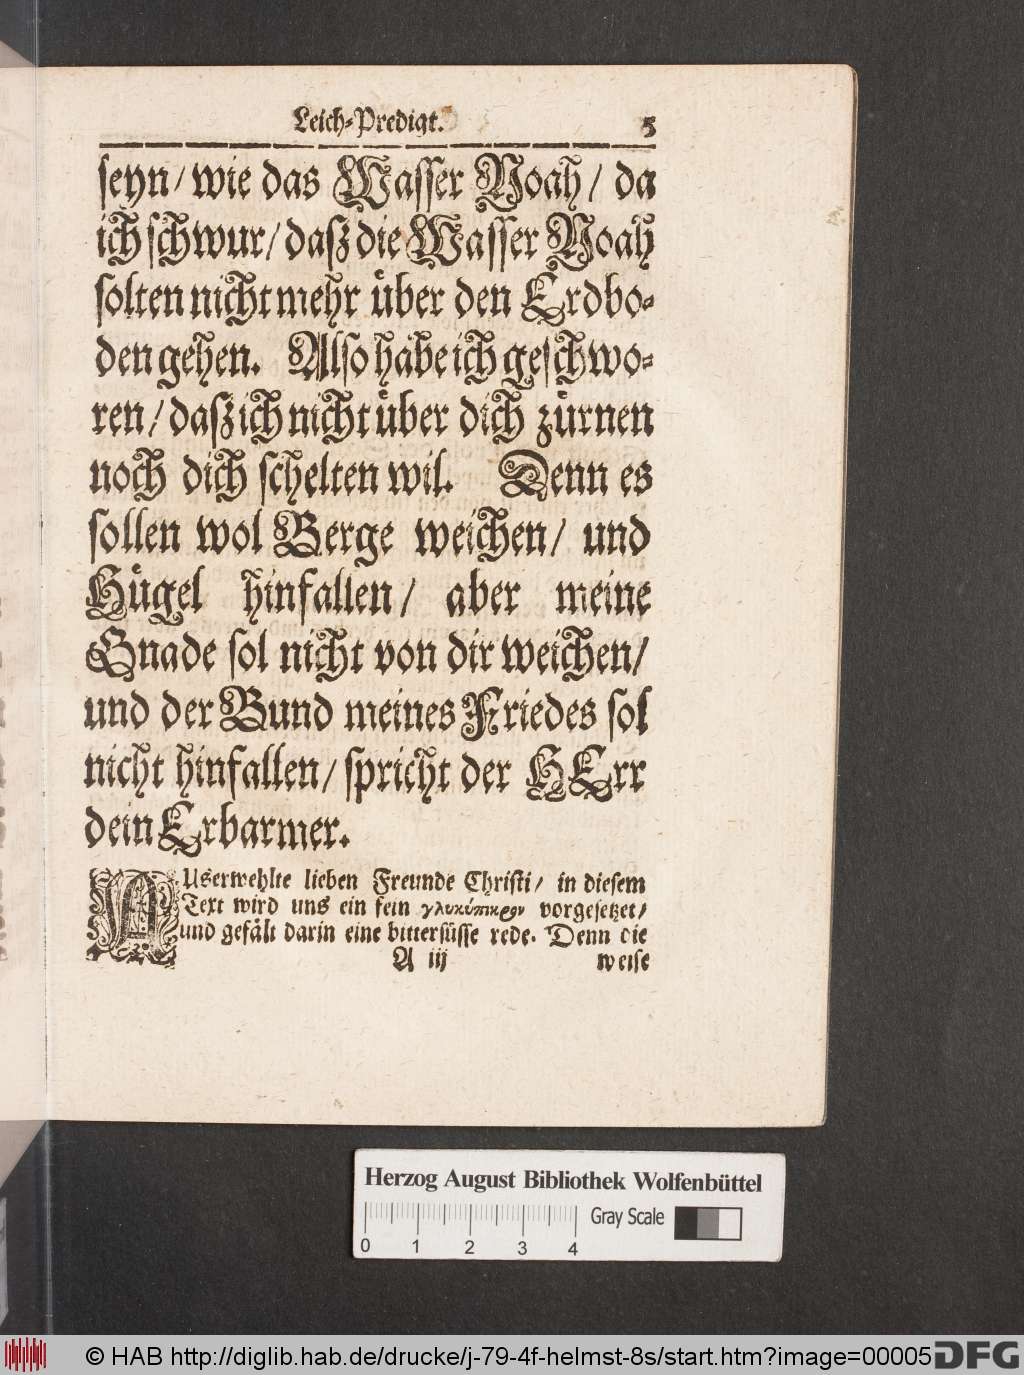 Leich-Predigt. 5
seyn/ wie das Wasser Noah/ da
ich schwur/ daß die Wasser Noah
solten nicht mehr über den Erdbo-
den gehen. Also habe ich geschwo-
ren/ daß ich nicht über dich zürnen
noch dich schelten wil. Denn es
sollen wol Berge weichen/ und
Hügel hinfallen/ aber meine
Gnade sol nicht von dir weichen/
und der Bund meines Friedes sol
nicht hinfallen/ spricht der HErr
dein Erbarmer.
AUserwehlte lieben Freunde Christi/ in diesem
Text wird uns ein fein γλυκύπικρον vorgesetzet/
und gefält darin eine bittersüsse rede. Denn die
A iij weise
Herzog August Bibliothek Wolfenbüttel
Gray Scale
0 1 2 3 4
© HAB http://diglib.hab.de/drucke/j-79-4f-helmst-8s/start.htm?image=00005 DFG